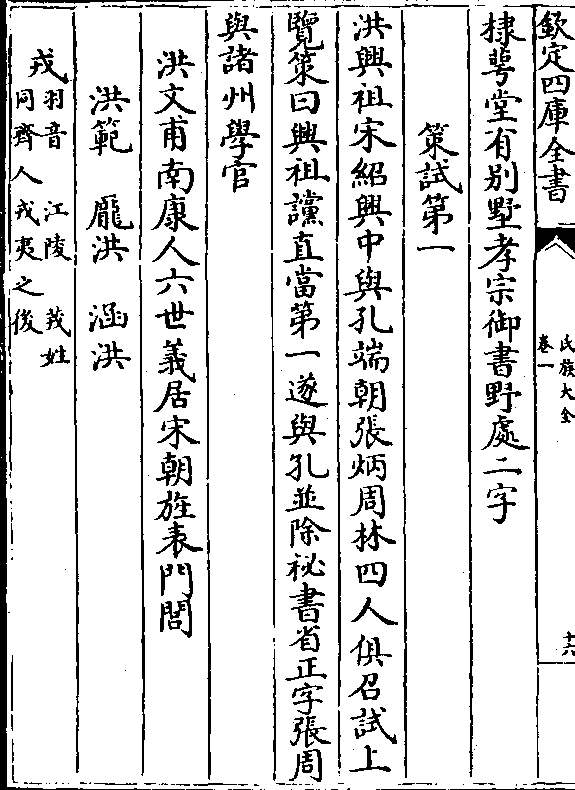 欽定四庫全書
氏族大全
卷一
十六
棣萼堂有别墅孝宗御書野處二字
策試第一
洪興祖宋紹興中與孔端朝張炳周林四人俱召試上
覽策曰興祖讜直當第一遂與孔並除秘書省正字張周
與諸州學官
洪文甫南康人六世義居宋朝旌表門閭
洪範　龎洪　涵洪
戎羽音　江陵　莪姓
同齊人戎夷之後